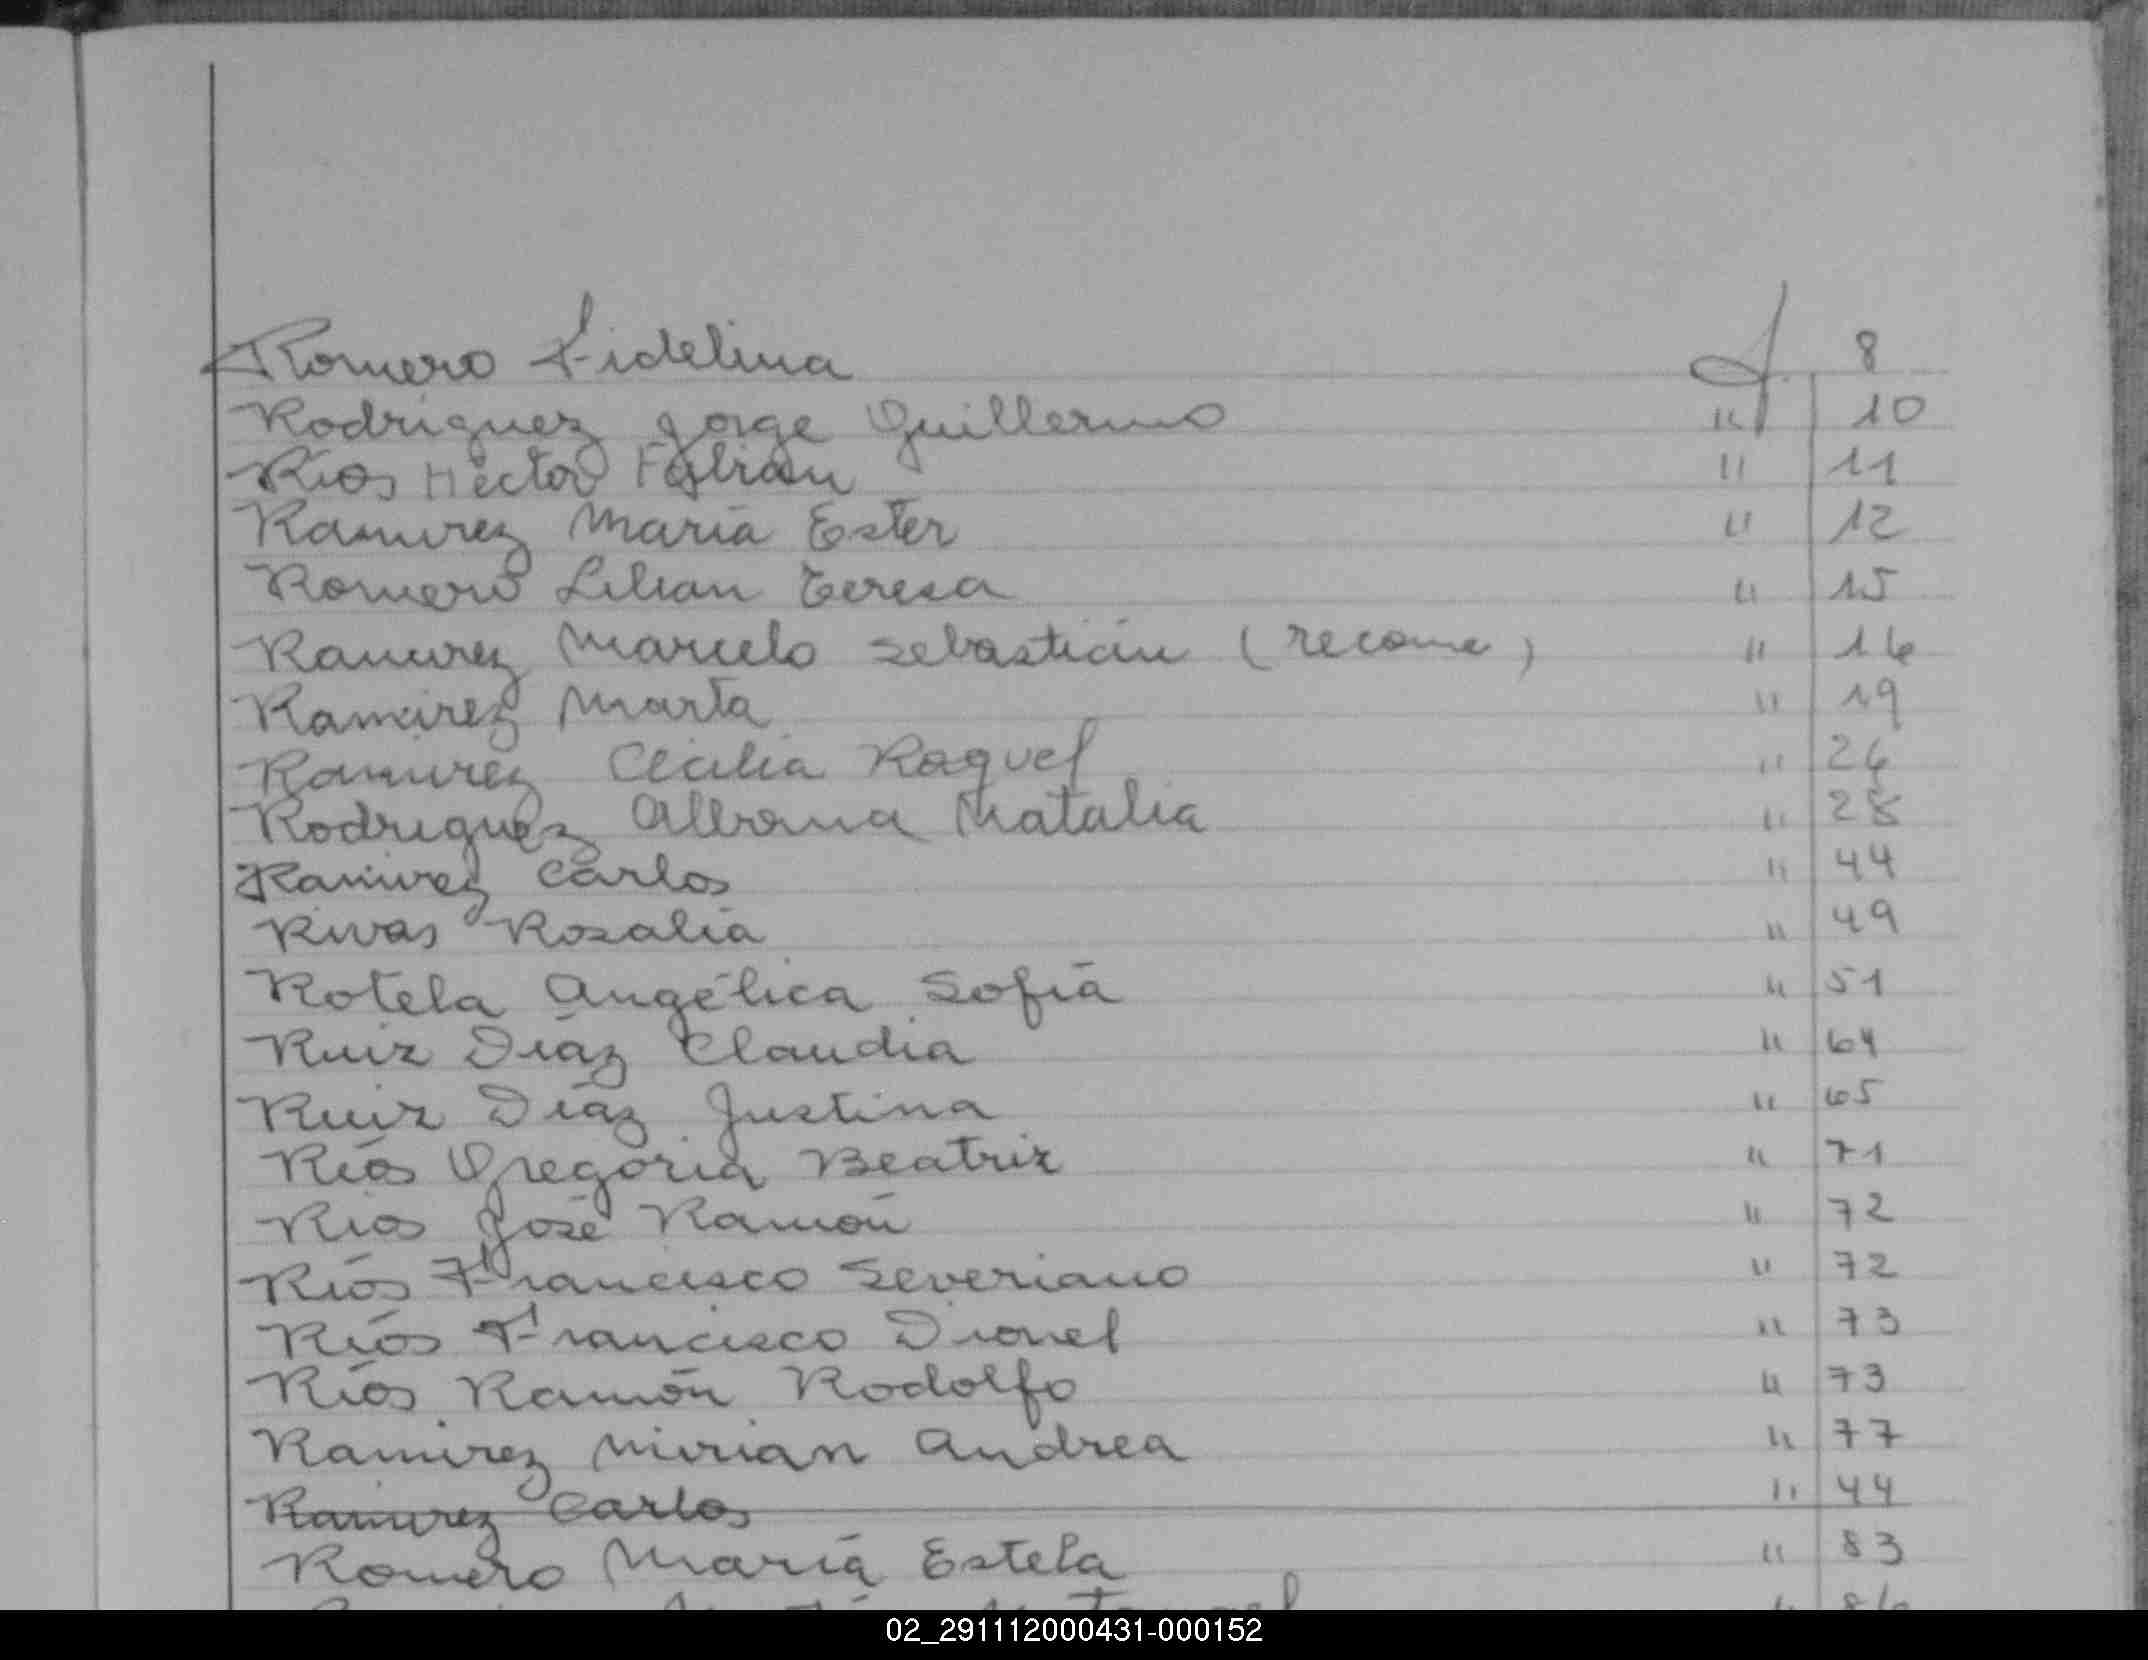 Romero Fidelina f 8
Rodríguez Jorge Guillermo " 10
Ríos Héctor Fabián " 11
Ramirez María Ester " 12
Romero Lilian Teresa " 15
Ramirez Marcelo Sebastián ( recono ) " 16
Ramirez Marta " 19
Ramirez Cecilia Raquel " 26
Rodriguez Albana Natalia " 28
Ramirez Carlos " 44
Rivas Rosalía " 49
Rotela Angélica Sofía " 51
Ruiz Díaz Claudia " 64
Ruiz Díaz Justina " 65
Ríos Gregoria Beatriz " 71
Rios José Ramón " 72
Ríos Francisco Severiano " 72
Ríos Francisco Dionel " 73
Ríos Ramón Rodolfo " 73
Ramirez Mirian Andrea " 77
Ramirez Carlos " 44
Romero María Estela " 83
" 86
02_291112000431-000152